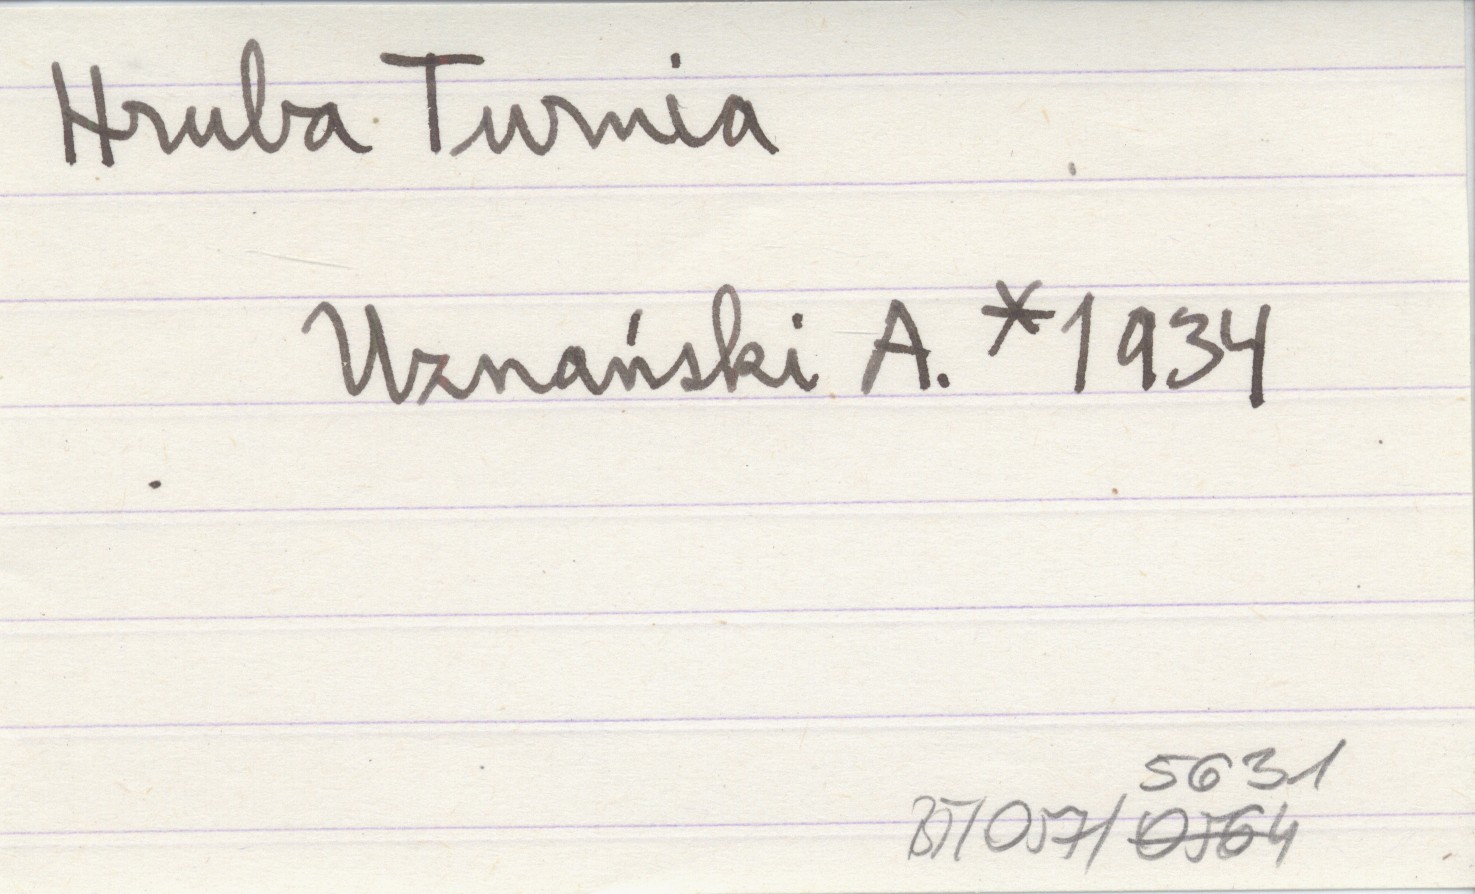 Hruba Turnia
Uznański A. *1934
5631
BT/057/ 0564